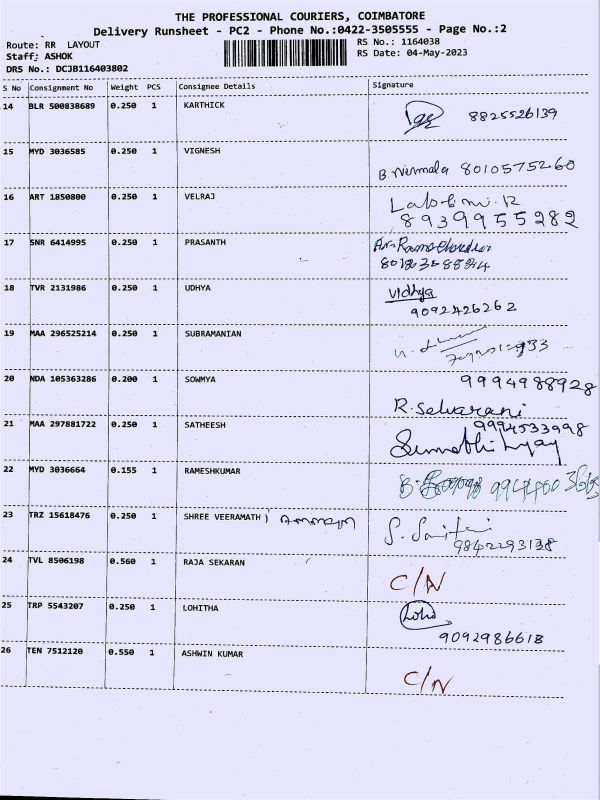 THE PROFESSIONAL COURIERS, COIMBATORE
Delivery Runsheet - PC2 - Phone No.:0422-3505555 - Page No.:2
Route: RR LAYOUT RS No.: 1164038
Staff: ASHOK RS Date: 04-May-2023
DRS No.: DCJB116403802
S No Consignment No Weight PCS Consignee Details Signature
14 BLR 500838689 0.250 1 KARTHICK 8825526139
15 MYD 3036585 0.250 1 VIGNESH B. Nirmala 8010575260
16 ART 1850800 0.250 1 VELRAJ
8939955282
17 SNR 6414995 0.250 1 PRASANTH
18 TVR 2131986 0.250 1 UDHYA Vidhya
9092426262
19 MAA 296525214 0.250 1 SUBRAMANIAN
20 NDA 105363286 0.200 1 SOWMYA 9994988928
R. Selvarani
21 MAA 297881722 0.250 1 SATHEESH 9994533998
22 MYD 3036664 0.155 1 RAMESHKUMAR
23 TRZ 15618476 0.250 1 SHREE VEERAMATH
9842293138
24 TVL 8506198 0.560 1 RAJA SEKARAN C/N
25 TRP 5543207 0.250 1 LOHITHA
9092986618
26 TEN 7512120 0.550 1 ASHWIN KUMAR C/N